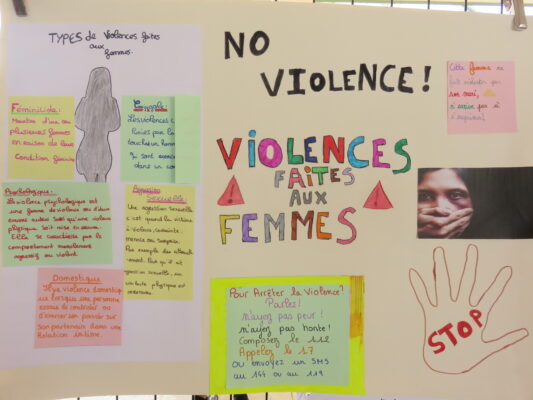 TYPES de Violences faites
aux
femmes.
Féminicide:
Meurtre d'une ou
plusieurs femmes
en raison de leur
Condition féminine
Couple:
Les violences
par le
Psychologique:
La violence psychologique est
une forme de violence ou d'abus
sans qu'une violence
physique soit mise en œuvre.
Elle se caractérise par le
comportement moralement
agressif ou violent
Agression
Sexuelle:
Une agression sexuelle
c'est quand la victime
à violence, contrainte
menace ou surprise.
Par exemple des attouche-
ment. Pour qu'il y ait
agression sexuelle, un
contacte physique est
nécessaire.
Domestique
Il y a violence domestiq-
ue lorsque une personne
essaie de contrôler ou
d'exercer son pouvoir sur
son partenaire dans une
Relation intime.
NO
VIOLENCE!
VIOLENCES
FAITES
AUX
FEMMES
Cette femme se
fait violenter par
son mari, elle
s'exprimer!
STOP
Pour Arrêter la Violence?
Parlez!
n'ayez pas peur!
n'ayez pas honte!
Composez le 112
Appelez le 17
ou envoyez un SMS
au 144 ou au 119